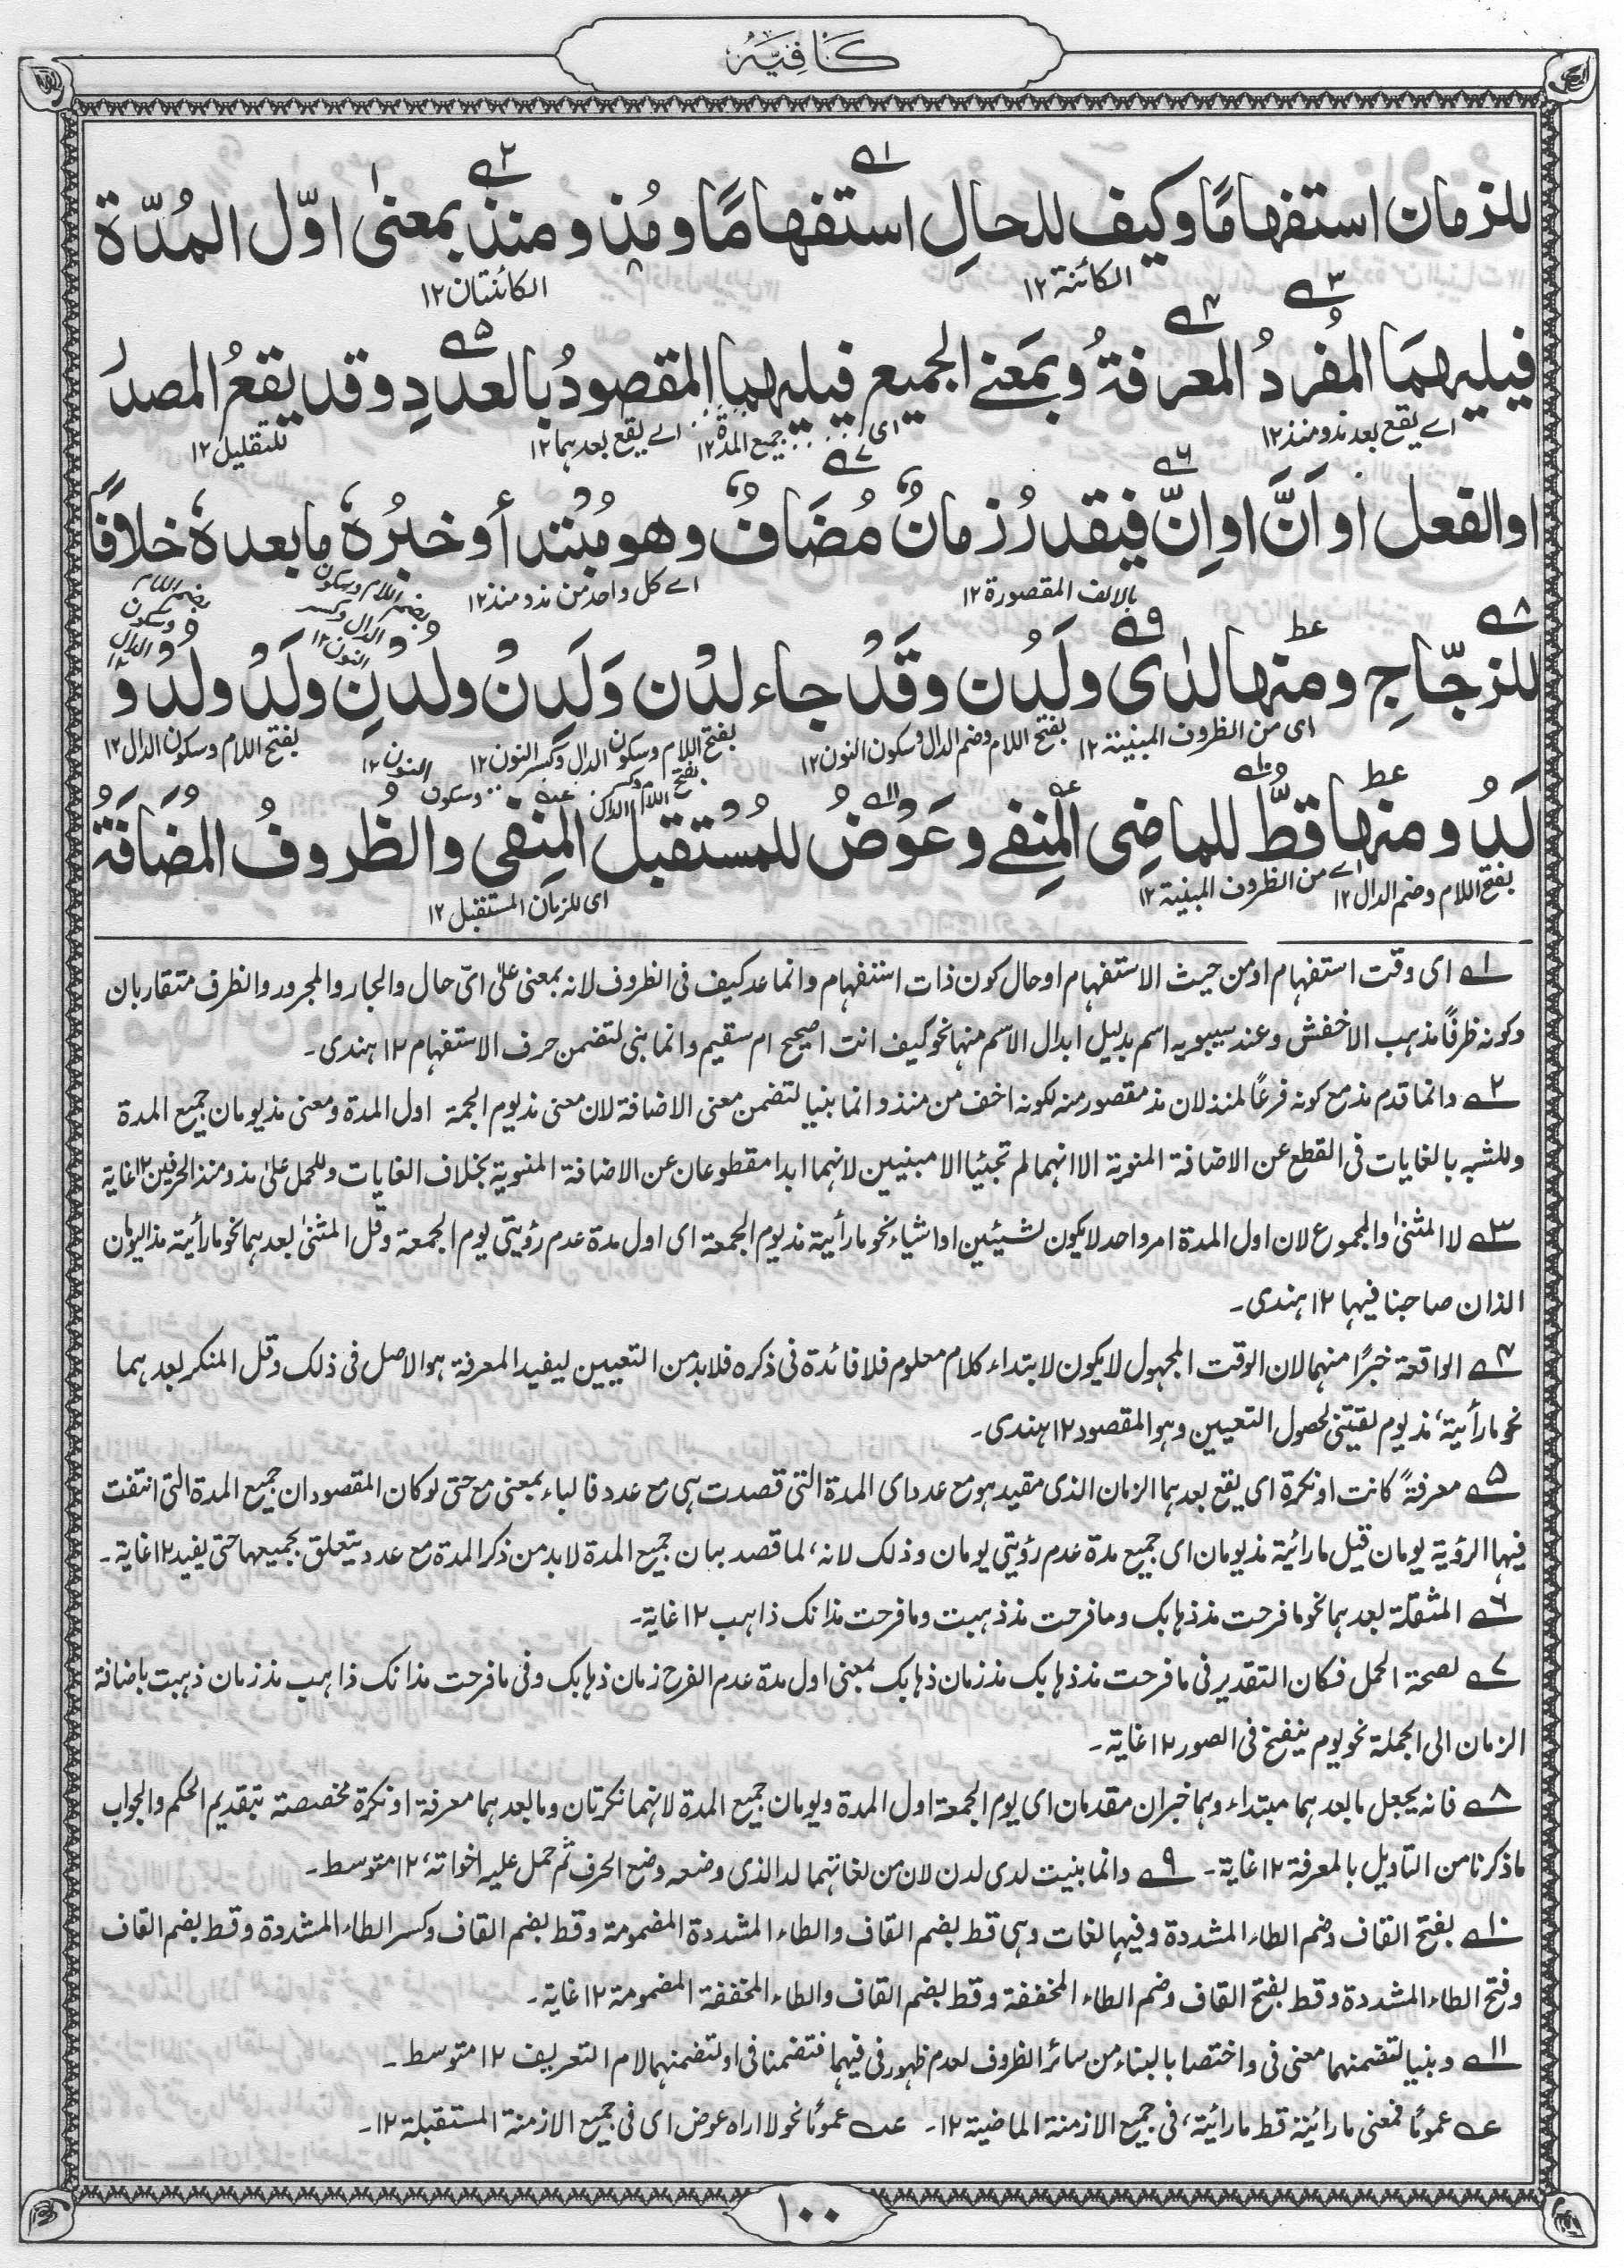 كَافِيَه
للزمان استفهامًا وكيف للحالِ استفهامًا ومُذ ومنذ بمعنىٰ اوّل المُدّة
الكائنة ١٢
الكائنتان ١٢
فيليهمَا المُفردُ المعرفةُ وبمَعنے الجميع فيليهما المقصودُ بالعددِ وقد يقعُ المصدرُ
اے يقع بعد مذ ومنذ ١٢
اى جميع المدة ١٢
اے يقع بعدهما ١٢
للتقليل ١٢
اوالفعل اَو اَنَّ اواِنّ فيقدرُ زمانٌ مُضَافٌ وهو مُبتدأ وخبرُهٗ ما بعدهٗ خلافًا
بالالف المقصورة ١٢
اے كل واحد من مذ ومنذ ١٢
بضم اللام وسكون الدال وكسر النون ١٢
بضم اللام وسكون الدال ١٢
للزجّاجِ ومنها لدٰى ولَدُن وقَدُ جاء لدُن وَلَدِنُ ولُدنِ ولَدُ ولُدُ و
اى من الظروف المبنية ١٢
بفتح اللام وضم الدال وسكون النون ١٢
بفتح اللام وسكون الدال وكسر النون ١٢
بفتح اللام وكسر الدال وسكون النون ١٢
بفتح اللام وسكون الدال ١٢
لَدُ ومنها قطُّ للماضِى المنِفے وعَوُضُ للمُسُتقبل المنِفى والظُروفُ المُضَافَةُ
بفتح اللام وضم الدال ١٢
اے من الظروف المبنية ١٢
اى للزمان المستقبل ١٢
١ اى وقت استفهام اومن حيث الاستفهام اوحال كون ذات استفهام وانما عد كيف فى الظروف لانه بمعنى علٰى اىّ حال والجار والمجرور والظرف متقاربان
وكونه ظرفًا مذهب الاخفش وعند سيبويه اسم بدليل ابدال الاسم منها نحو كيف انت اصحيح ام سقيم وانما بنى لتضمن حرف الاستفهام ١٢ هندى۔
٢ وانما قدم مذ مع كونه فرعًا لمنذ لان مذ مقصور منه لكونه اخف من منذ وانما بنيا لتضمن معنى الاضافة لان معنى مذ يوم الجمة اول المدة ومعنى مذ يومان جميع المدة
وللشبه بالغايات فى القطع عن الاضافة المنوية الا انهما لم تجيئيا الا مبنيين لانهما ابدا مقطوعان عن الاضافة المنوية بخلاف الغايات وللحمل علىٰ مذ ومنذ الحرفين ١٢ غاية
٣ لا المثنىٰ والمجموع لان اول المدة امر واحد لا يكون لشيئين او اشياء نحو ما رأيتة مذ يوم الجمعة اى اول مدة عدم رؤيتى يوم الجمعة وقل المثنىٰ بعدهما نحو ما رأيتة مذ اليومان
الذان صاحبنا فيها ١٢ هندى۔
٤ الواقعة خبرًا منهما لان الوقت المجهول لا يكون لابتداء كلام معلوم فلا فائدة فى ذكره فلابد من التعيين ليفيد المعرفة هو الاصل فى ذلك وقل المنكر بعدهما
نحو ما رأيتة، مذ يوم لقيتنى لحصول التعيين وهو المقصود ١٢ هندى۔
٥ معرفةً كانت او نكرة اى يقع بعدهما الزمان الذى مقيد هو مع عدد اى المدة التى قصدت هى مع عدد فالباء بمعنى مع حتى لو كان المقصود ان جميع المدة التى انتفت
فيها الرؤية يومان قيل ما رائية مذ يومان اى جميع مدة عدم رؤيتى يومان وذلك لانه، لما قصد بيان جميع المدة لابد من ذكر المدة مع عدد يتعلق بجميعها حتى يفيد ١٢ غاية۔
٦ المثقلة بعدهما نحو ما فرحت مذ ذهابك وما فرحت مذ ذهبت وما فرحت مذ انك ذاهب ١٢ غاية۔
٧ لصحة الحمل فكان التقدير فى ما فرحت مذ ذهابك مذ زمان ذهابك بمعنى اول مدة عدم الفرح زمان ذهابك وفى ما فرحت مذ انك ذاهب مذ زمان ذهبت باضافة
الزمان الى الجملة نحو يوم ينفخ فى الصور ١٢ غاية۔
٨ فانه يجعل ما بعدهما مبتداء وهما خبران مقدمان اى يوم الجمعة اول المدة ويومان جميع المدة لانهما نكرتان وما بعدهما معرفة او نكرة مخصصة بتقديم الحكم والجواب
ما ذكرنا من التاويل بالمعرفة ١٢ غاية۔ ٩ وانما بنيت لدى لدن لان من لغاتهما لد الذى وضعه وضع الحرف ثم حمل عليه اخواتة، ١٢ متوسط۔
١٠ بفتح القاف وضم الطاء المشددة وفيها لغات وهى قط بضم القاف والطاء المشددة المضمومة وقط بضم القاف وكسر الطاء المشددة وقط بضم القاف
وفتح الطاء المشددة وقط بفتح القاف وضم الطاء المخففة وقط بضم القاف والطاء المخففة المضمومة ١٢ غاية۔
١١ وبنيا لتضمنهما معنى فى واختصا بالبناء من سائر الظروف لعدم ظهور فى فيهما فتضمنا فى او لتضمنهما لام التعريف ١٢ متوسط۔
عہ عمومًا فمعنى ما رائيتة قط ما رائيتة، فى جميع الازمنة الماضية ١٢۔ عہ عمومًا نحو لا اراه عوض اى فى جميع الازمنة المستقبلة ١٢۔
١٠٠